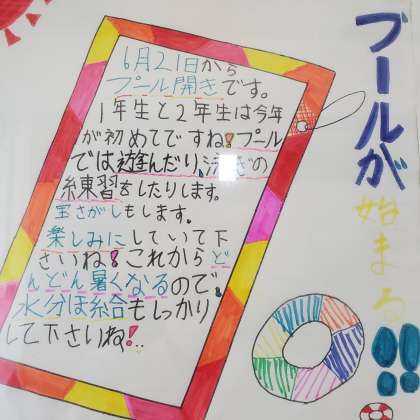 プールが始まる!!
6月21日から
プール開きです。
1年生と2年生は今年
が初めてですね!プール
では遊んだり、泳ぎの
練習をしたりします。
宝さがしもします。
楽しみにしていて下
さいね!これからど
んどん暑くなるので、
水分ほ給もしっかり
して下さいね!..